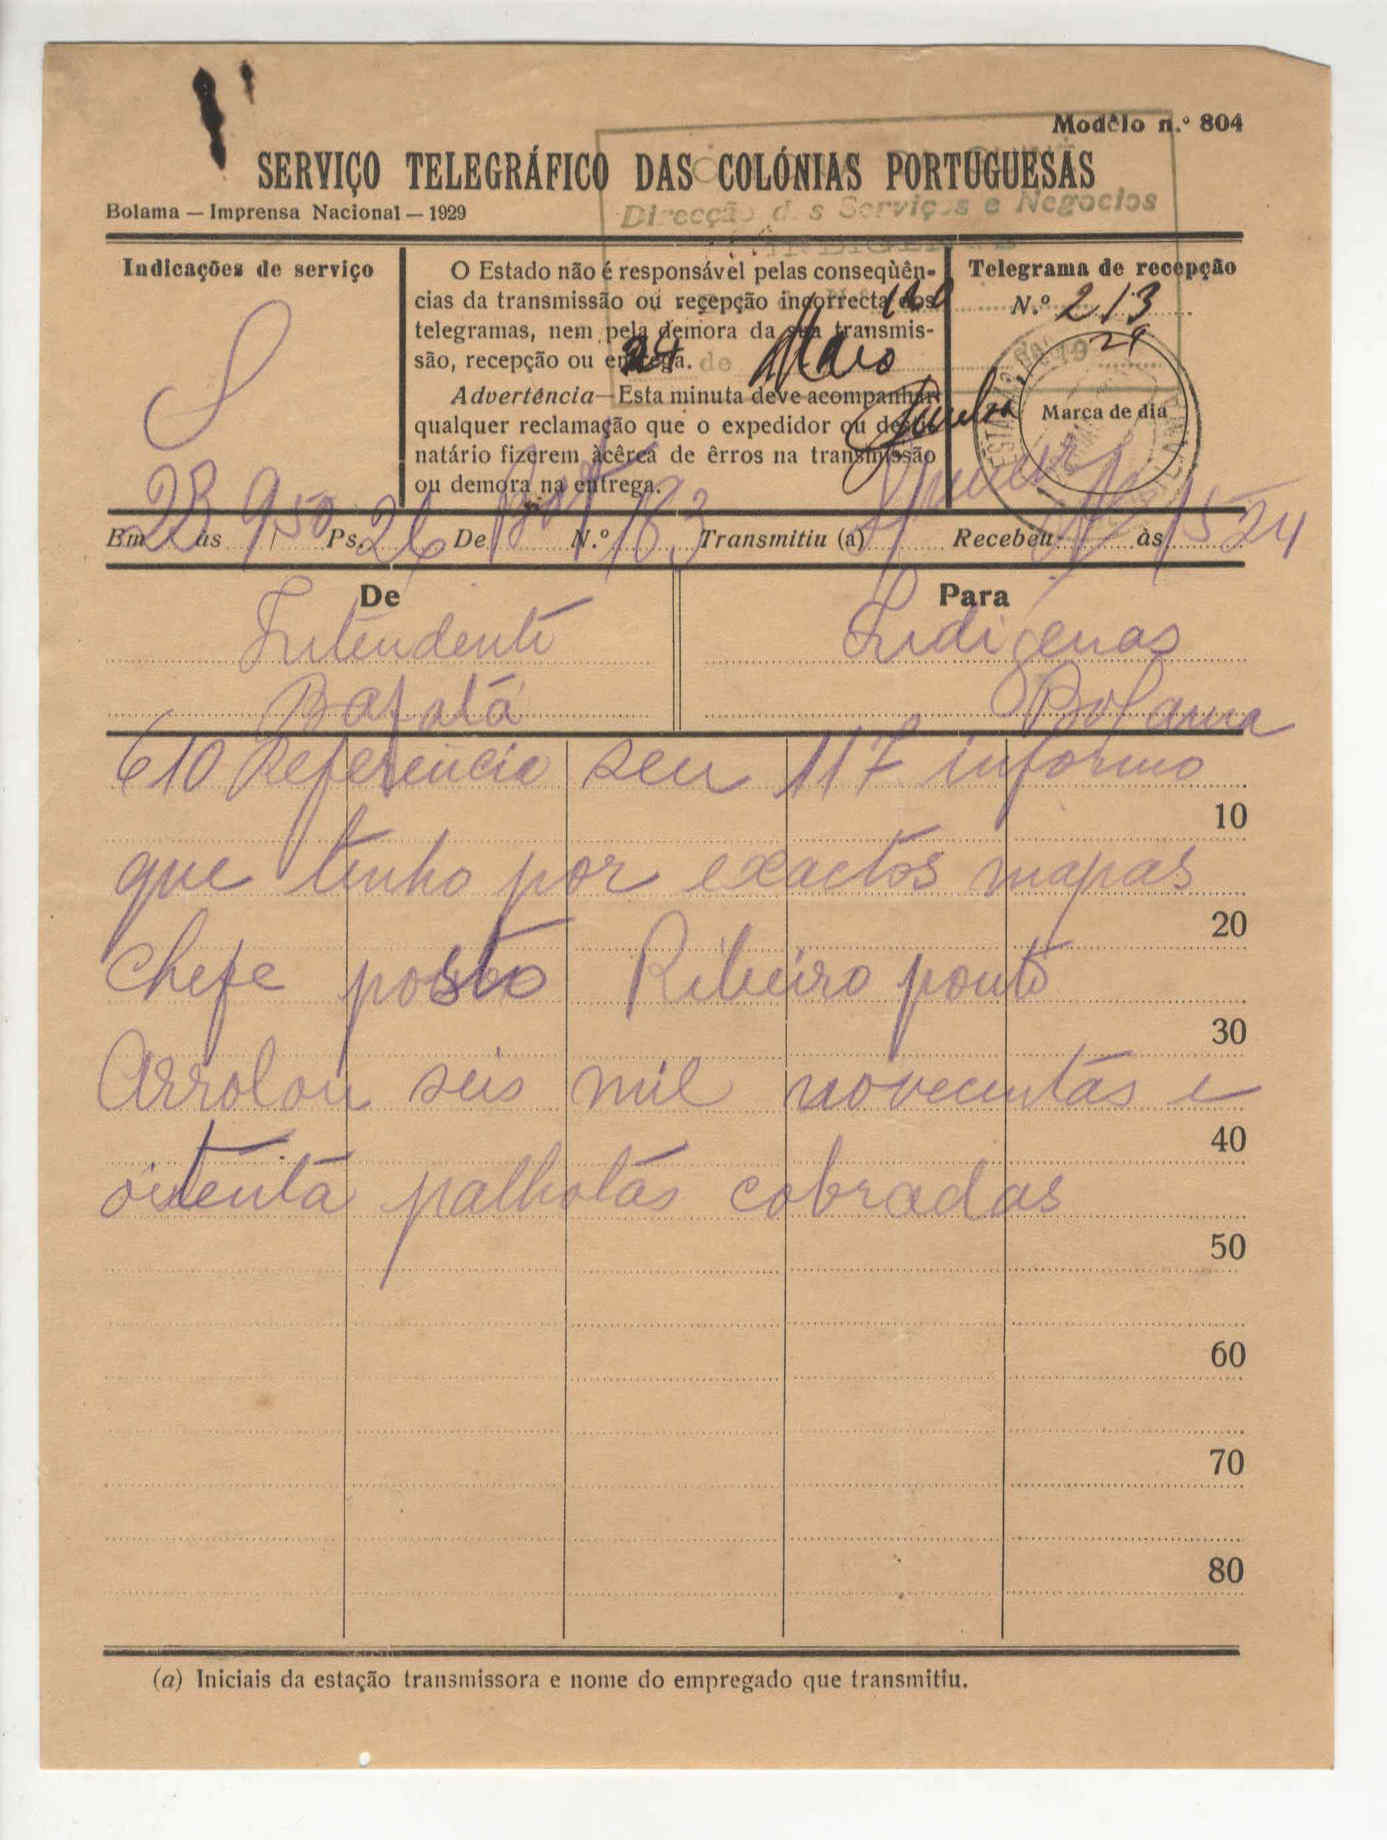 Modêlo n.º 804
SERVIÇO TELEGRÁFICO DAS COLÓNIAS PORTUGUESAS
Bolama — Imprensa Nacional — 1929
Direcção dos Serviços e Negocios
Indicações de serviço
S
O Estado não é responsável pelas conseqùên-
cias da transmissão ou recepção incorrecta dos
telegramas, nem pela demora da sua transmis-
são, recepção ou entrega.
Advertência—Esta minuta deve acompanhar
qualquer reclamação que o expedidor ou desti-
natário fizerem àcêrca de êrros na transmissão
ou demora na entrega.
24 de Maio
Telegrama de recepção
N.º 213
29
Marca de dia
Em 23 às 950 Ps. 26 De Baf N.º 183 Transmitiu (a) Recebeu às 15 24
De
Intendente
Bafatá
Para
Indigenas
Bolama
610 Referencia seu 117 informo
10
que tenho por exactos mapas
20
Chefe posto Ribeiro ponto
30
Arrolou seis mil novecentas e
40
oitenta palhotas cobradas
50
60
70
80
(a) Iniciais da estação transmissora e nome do empregado que transmitiu.